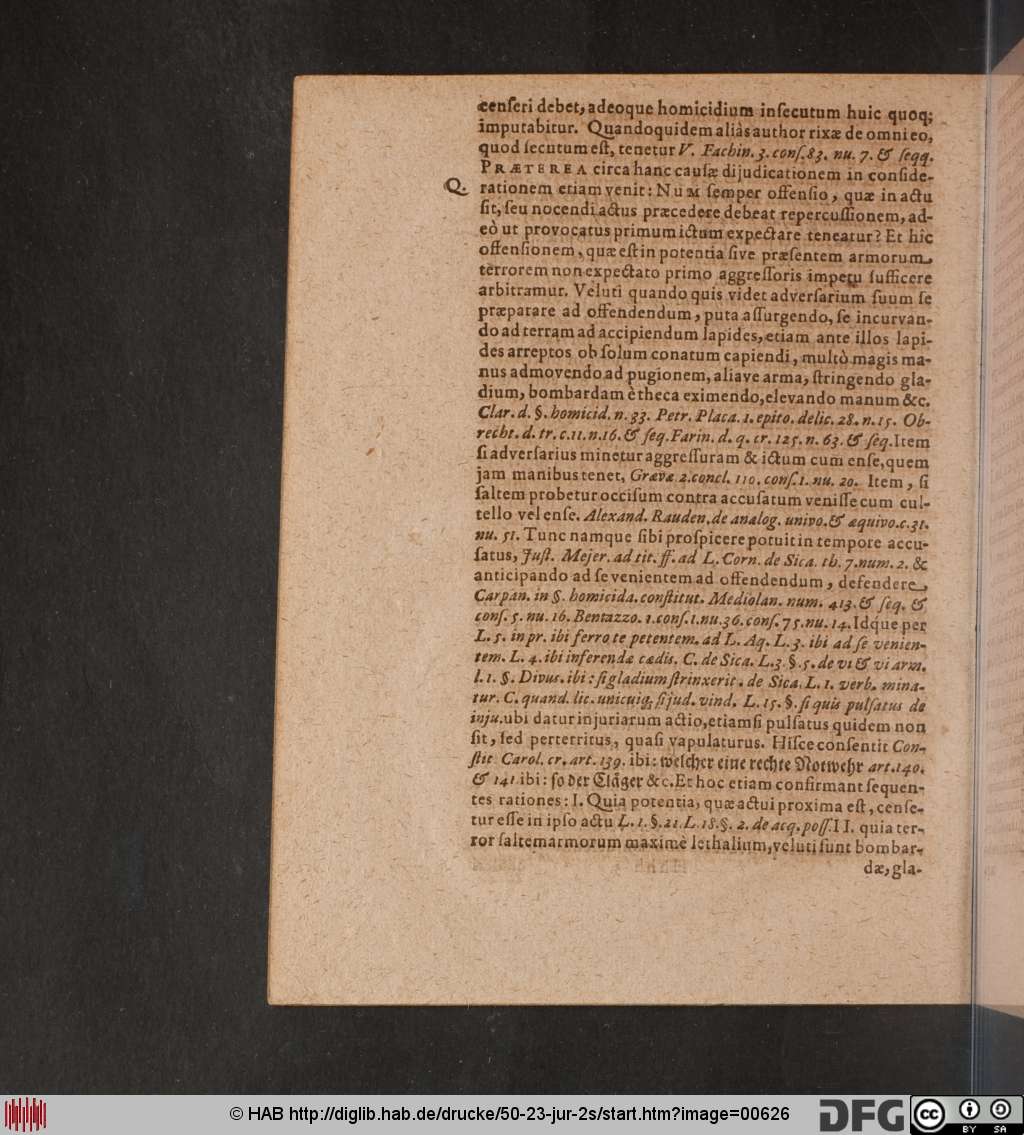 censeri debet, adeoque homicidium insecutum huic quoq;
imputabitur. Quandoquidem aliàs author rixæ de omni eo,
quod secutum est, tenetur V. Fachin. 3. cons. 83. nu. 7. & seqq.
PRÆTEREA circa hanc causæ dijudicationem in conside-
Q. rationem etiam venit: NUM semper offensio, quæ in actu
sit, seu nocendi actus præcedere debeat repercussionem, ad-
eò ut provocatus primum ictum expectare teneatur? Et hic
offensionem, quæ est in potentia sive præsentem armorum
terrorem non expectato primo aggressoris impetu sufficere
arbitramur. Veluti quando quis videt adversarium suum se
præparare ad offendendum, puta assurgendo, se incurvan-
do ad terram ad accipiendum lapides, etiam ante illos lapi-
des arreptos ob solum conatum capiendi, multò magis ma-
nus admovendo ad pugionem, aliave arma, stringendo gla-
dium, bombardam è theca eximendo, elevando manum &c.
Clar. d. §. homicid. n. 33. Petr. Placa. 1. epito. delic. 28. n. 15. Ob-
recht. d. tr. c. 11. n. 16. & seq. Farin. d. q. cr. 125. n. 63. & seq. Item
si adversarius minetur aggressuram & ictum cum ense, quem
jam manibus tenet, Grævæ 2. concl. 110. cons. 1. nu. 20. Item, si
saltem probetur occisum contra accusatum venisse cum cul-
tello vel ense. Alexand. Rauden. de analog. univo. & æquivo. c. 31.
nu. 51. Tunc namque sibi prospicere potuit in tempore accu-
satus, Just. Mejer. ad tit. ff. ad L. Corn. de Sica. th. 7. num. 2. &
anticipando ad se venientem ad offendendum, defendere,
Carpan. in §. homicida. constitut. Mediolan. num. 413. & seq. &
cons. 5. nu. 16. Bentazzo. 1. cons. 1. nu. 36. cons. 75. nu. 14. Idque per
L. 5. in pr. ibi ferro te petentem. ad L. Aq. L. 3. ibi ad se venien-
tem. L. 4. ibi inferendæ cædis. C. de Sica. L. 3. §. 5. de vi & vi arm.
l. 1. §. Divus. ibi: si gladium strinxerit. de Sica. L. 1. verb. mina-
tur. C. quand. lic. unicuiq; si jud. vind. L. 15. §. si quis pulsatus de
inju. ubi datur injuriarum actio, etiamsi pulsatus quidem non
sit, sed perterritus, quasi vapulaturus. Hisce consentit Con-
stit Carol. cr. art. 139. ibi: welcher eine rechte Notwehr art. 140.
& 141 ibi: so der Cläger &c. Et hoc etiam confirmant sequen-
tes rationes: I. Quia potentia, quæ actui proxima est, cense-
tur esse in ipso actu L. 1. §. 21. L. 18. §. 2. de acq. poss. II. quia ter-
ror saltem armorum maximè lethalium, veluti sunt bombar-
dæ, gla-
© HAB http://diglib.hab.de/drucke/50-23-jur-2s/start.htm?image=00626
DFG cc BY SA